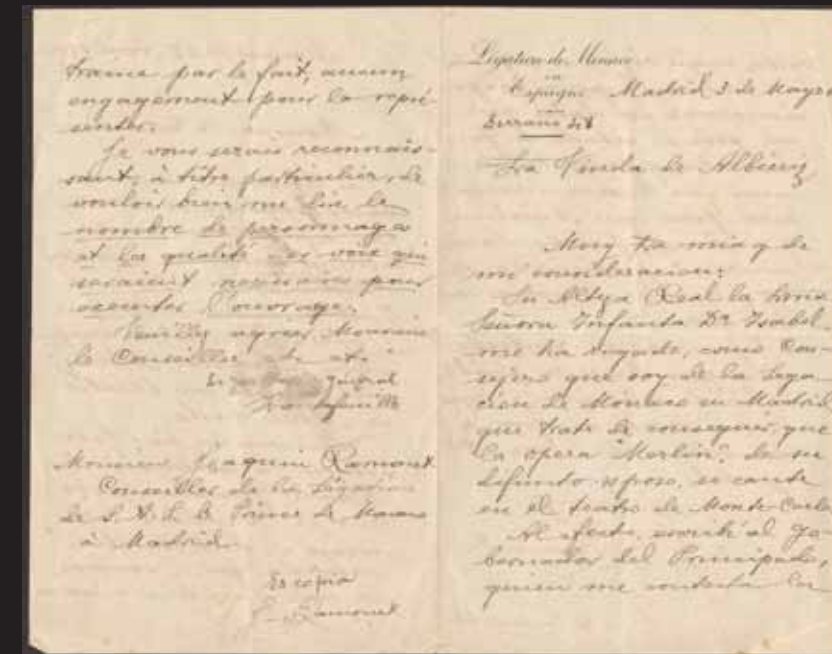 traine par le fait, aucun
engagement pour la repré-
senter.
Je vous serais reconnais-
sant, à titre particulier, de
vouloir bien me dire le
nombre de personnages
et la qualité des voix qui
seraient nécessaires pour
exécuter l'ouvrage.
Veuillez agréer, Monsieur
le Conseiller etc etc
Le Gouverneur Général
Monsieur Joaquin Ramonet
Conseiller de la Légation
de S. A. S. le Prince de Monaco
à Madrid
Es copia
J. Ramonet
Légation de Monaco
en
Espagne Madrid 3 de Mayo
Serrano 48
Sra Viuda de Albéniz
Muy Sra mia y de
mi consideracion:
Su Alteza Real la Serma
Señora Infanta Dª Isabel,
me ha rogado, como Con-
sejero que soy de la Lega-
cion de Monaco en Madrid,
que trate de conseguir que
la opera "Merlin", de su
difunto esposo, se cante
en el teatro de Monte-Carlo
Al efecto, escribí al Go-
bernador del Principado,
quien me contesta lo